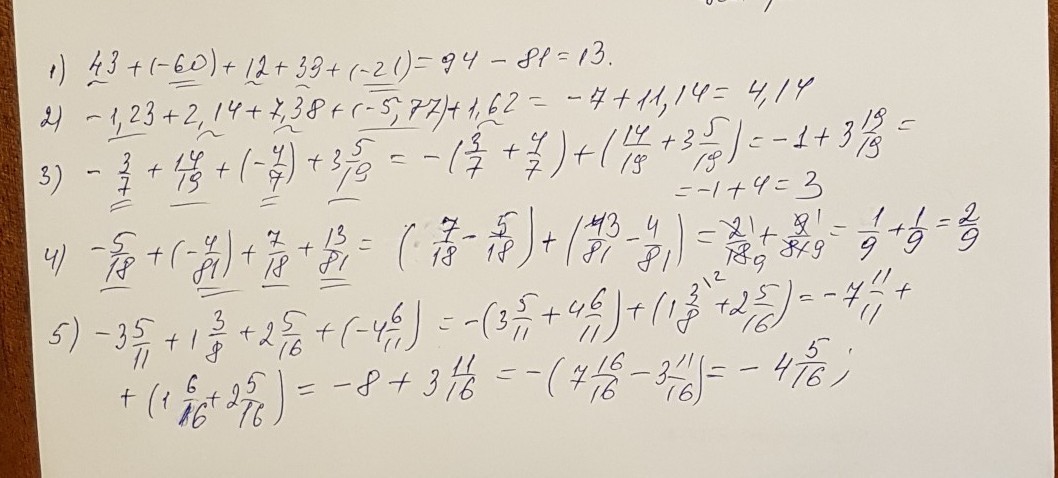 1) 43 + (-60) + 12 + 39 + (-21) = 94 - 81 = 13.
2) -1,23 + 2,14 + 7,38 + (-5,77) + 1,62 = -7 + 11,14 = 4,14
3) - 3/7 + 14/19 + (- 4/7) + 3 5/19 = - (3/7 + 4/7) + (14/19 + 3 5/19) = -1 + 3 19/19 =
= -1 + 4 = 3
4) -5/18 + (- 4/81) + 7/18 + 13/81 = (7/18 - 5/18) + (13/81 - 4/81) = 2 1/18 9 + 9 1/81 9 = 1/9 + 1/9 = 2/9
5) -3 5/11 + 1 3/8 + 2 5/16 + (-4 6/11) = -(3 5/11 + 4 6/11) + (1 3/8 \2 + 2 5/16) = -7 11/11 +
+ (1 6/16 + 2 5/16) = -8 + 3 11/16 = -(7 16/16 - 3 11/16) = - 4 5/16;